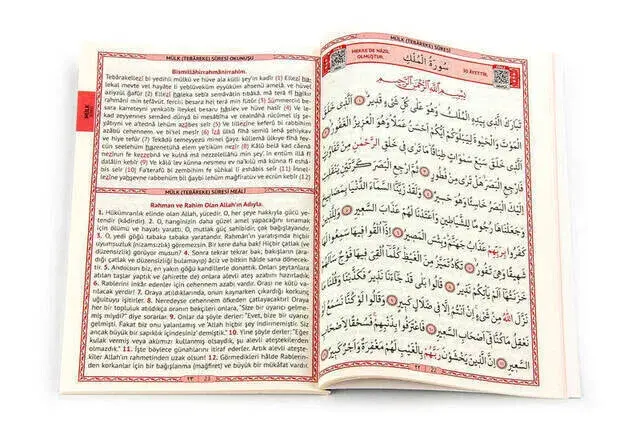 MÜLK (TEBÂREKE) SÛRESİ OKUNUŞU
MÜLK
Bismillâhirrahmânirrahîm.
Tebârakellezî bi yedihil mülkü ve hüve alâ külli şey'in kadîr (1) Ellezî ha
lekal mevte vel hayâte li yeblüveküm eyyüküm ahsenü amelâ ve hüvel
azîzül ğafûr (2) Ellezî haleka seb'a semâvâtin tıbâkâ mâ terâ fî halkır
rahmâni min tefâvüt, ferciıl besara hel terâ min fütûr (3) Sümmerciıl be-
sara karrateyni yenkalib ileykel besaru hâsiev ve hüve hasîr (4) Ve le-
kad zeyyennes semâed dünyâ bi mesâbîha ve cealnâhâ rücûmel liş şe-
yâtıyni ve a'tednâ lehüm azâbes seîr (5) Ve lillezîne keferû bi rabbihim
azâbü cehennem ve bi'sel mesîr (6) İzâ ülkû fîhâ semiû lehâ şehîykav
ve hiye tefûr (7) Tekâdü temeyyezü minel ğayz küllemâ ülkıye fîhâ fev-
cün seelehüm hazenetühâ elem ye'tiküm nezîr (8) Kâlû belâ kad câenâ
nezîrun fe kezzebnâ ve kulnâ mâ nezzelellâhü min şey'in entüm illâ fî
dalâlin kebîr (9) Ve kâlû lev künnâ nesmeu ev na'kılü mâ künnâ fî eshâ-
bis seîr (10) Fa'terafû bi zembihim fe sühkal li eshâbis seîr (11) İnnel-
lezîne yahşevne rabbehüm bil ğaybi lehüm mağfiratüv ve ecrün kebîr (12)
MÜLK (TEBÂREKE) SÛRESİ MEÂLİ
Rahman ve Rahim Olan Allah'ın Adıyla.
1. Hükümranlık elinde olan Allah, yücedir. O, her şeye hakkıyla gücü ye-
tendir (kâdirdir). 2. O, hanginizin daha güzel amel yapacağını sınamak
için ölümü ve hayatı yarattı. O, mutlak güç sahibidir, çok bağışlayandır.
3. O, yedi göğü tabaka tabaka yaratandır. Rahmân'ın yaratışında hiçbir
uyumsuzluk (nizamsızlık) göremezsin. Bir kere daha bak! Hiçbir çatlak (ve
düzensizlik) görüyor musun? 4. Sonra tekrar tekrar bak; bakışların (ara-
dığı çatlak ve düzensizliği bulamayıp) âciz ve bitkin hâlde sana dönecek-
tir. 5. Andolsun biz, en yakın göğü kandillerle donattık. Onları şeytanlara
atılan taşlar yaptık ve (ahirette de) onlara alevli ateş azabını hazırladık.
6. Rablerini inkâr edenler için cehennem azabı vardır. Orası ne kötü va-
rılacak yerdir! 7. Oraya atıldıklarında, onun kaynarken çıkardığı korkunç
uğultuyu işitirler. 8. Neredeyse cehennem öfkeden çatlayacaktır! Oraya
her bir topluluk atıldıkça oranın bekçileri onlara, "Size bir uyarıcı gelme-
miş miydi?" diye sorarlar. 9. Onlar da şöyle derler: "Evet, bize bir uyarıcı
gelmişti. Fakat biz onu yalanlamış ve 'Allah hiçbir şey indirmemiştir. Siz
ancak büyük bir sapıklık içindesiniz' demiştik." 10. Yine şöyle derler: "Eğer
kulak vermiş veya aklımızı kullanmış olsaydık, şu alevli ateştekilerden
olmazdık." 11. İşte böylece günahlarını itiraf ederler. Artık alevli ateşte-
kiler Allah'ın rahmetinden uzak olsun! 12. Görmedikleri hâlde Rablerin-
den korkanlar için bir bağışlanma (mağfiret) ve büyük bir mükâfat vardır.
٢٣ 23
MÜLK (TEBÂREKE) SÛRESİ
MEKKE'DE NÂZİL
OLMUŞTUR.
سُورَةُ الْمُلْكِ
30 ÂYETTİR.
بِسْمِ اللّٰهِ الرَّحْمٰنِ الرَّحِيمِ
تَبَارَكَ الَّذِي بِيَدِهِ الْمُلْكُ وَهُوَ عَلٰى كُلِّ شَيْءٍ قَدِيرٌ اَلَّذِي خَلَقَ
الْمَوْتَ وَالْحَيٰوةَ لِيَبْلُوَكُمْ اَيُّكُمْ اَحْسَنُ عَمَلًا وَهُوَ الْعَزِيزُ الْغَفُورُ
اَلَّذِي خَلَقَ سَبْعَ سَمٰوَاتٍ طِبَاقًا مَا تَرٰى فِي خَلْقِ الرَّحْمٰنِ مِنْ تَفَاوُتٍ
فَارْجِعِ الْبَصَرَ هَلْ تَرٰى مِنْ فُطُورٍ ثُمَّ ارْجِعِ الْبَصَرَ كَرَّتَيْنِ يَنْقَلِبْ
اِلَيْكَ الْبَصَرُ خَاسِئًا وَهُوَ حَسِيرٌ وَلَقَدْ زَيَّنَّا السَّمَاءَ الدُّنْيَا بِمَصَابِيحَ
وَجَعَلْنَاهَا رُجُومًا لِلشَّيَاطِينِ وَاَعْتَدْنَا لَهُمْ عَذَابَ السَّعِيرِ وَلِلَّذِينَ
كَفَرُوا بِرَبِّهِمْ عَذَابُ جَهَنَّمَ وَبِئْسَ الْمَصِيرُ اِذَا اُلْقُوا فِيهَا سَمِعُوا لَهَا
شَهِيقًا وَهِيَ تَفُورُ تَكَادُ تَمَيَّزُ مِنَ الْغَيْظِ كُلَّمَا اُلْقِيَ فِيهَا فَوْجٌ سَاَلَهُمْ
خَزَنَتُهَا اَلَمْ يَاْتِكُمْ نَذِيرٌ قَالُوا بَلٰى قَدْ جَاءَنَا نَذِيرٌ فَكَذَّبْنَا وَقُلْنَا مَا
نَزَّلَ اللّٰهُ مِنْ شَيْءٍ اِنْ اَنْتُمْ اِلَّا فِي ضَلَالٍ كَبِيرٍ وَقَالُوا لَوْ كُنَّا نَسْمَعُ اَوْ
نَعْقِلُ مَا كُنَّا فِي اَصْحَابِ السَّعِيرِ فَاعْتَرَفُوا بِذَنْبِهِمْ فَسُحْقًا لِاَصْحَابِ
السَّعِيرِ اِنَّ الَّذِينَ يَخْشَوْنَ رَبَّهُمْ بِالْغَيْبِ لَهُمْ مَغْفِرَةٌ وَاَجْرٌ كَبِيرٌ
٢٢ 22